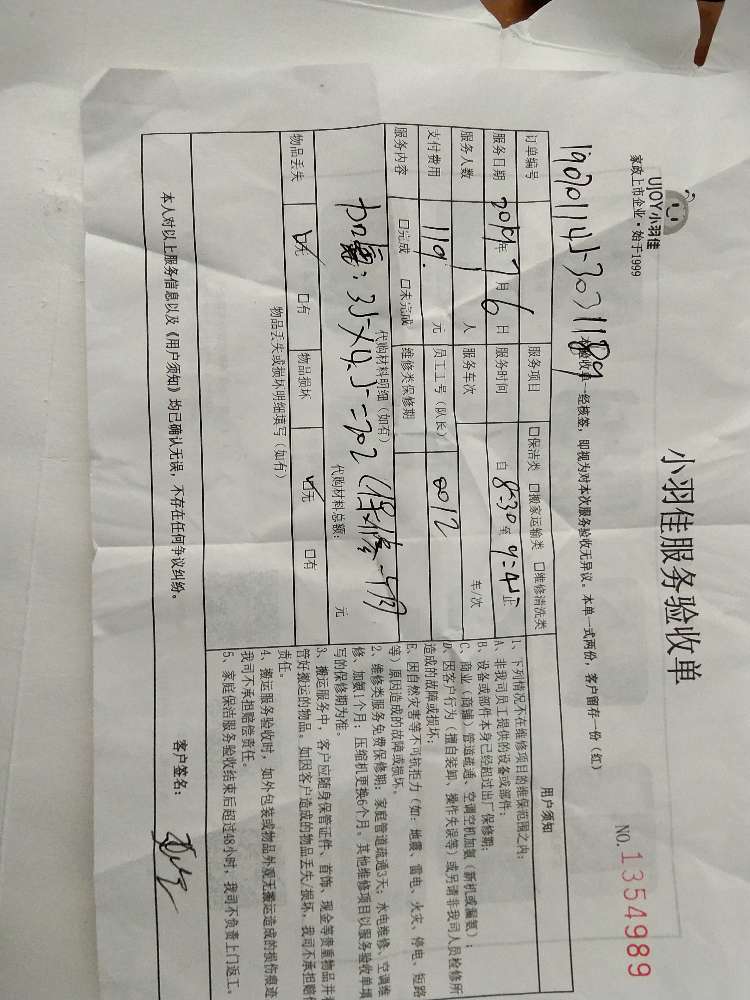 UJOY小羽佳
家政上市企业·始于1999
小羽佳服务验收单
NO.1354989
本验收单一经核签，即视为对本次服务验收无异议。本单一式两份，客户留存一份（红）
订单编号
服务项目 □保洁类 □搬家运输类 □维修清洗类
服务日期 2019年7月6日 服务时间 自 8:30 至 9:45 止
服务人数 1 人 服务车次 车/次
支付费用 119. 元 员工工号（队长） 0012
服务内容 □完成 □未完成 维修类保修期
代购材料明细（如有）
35×4.5=702（保修一个月）
代购材料总额： 元
物品丢失 ☑无 □有 物品损坏 ☑无 □有
物品丢失或损坏明细填写（如有）
用户须知
1、下列情况不在维修项目的维保范围之内：
A、非我司员工提供的设备或部件；
B、设备或部件本身已经超过出厂保修期；
C、商业（商铺）管道疏通、空调空机加氨（新机或漏氨）；
D、因客户行为（擅自装卸、操作失误等）或另请非我司人员检修所
造成的故障或损坏；
E、因自然灾害等不可抗拒力（如：地震、雷电、火灾、停电、短路
等）原因造成的故障或损坏。
2、维修类服务免费保修期：家庭管道疏通3天；水电维修、空调维
修、加氨1个月；压缩机更换6个月。其他维修项目以服务验收单填
写的保修期为准。
3、搬运服务中，客户应随身保管证件、首饰、现金等贵重物品并
管好搬运的物品。如因客户造成的物品丢失/损坏，我司不承担赔
责任。
4、搬运服务验收时，如外包装或物品外观无搬运造成的损伤痕迹
我司不承担赔偿责任。
5、家庭保洁服务验收结束后超过48小时，我司不负责上门返工。
本人对以上服务信息以及《用户须知》均已确认无误，不存在任何争议纠纷。
客户签名：